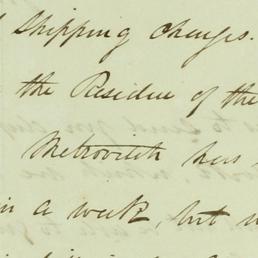 shipping charges.
the Residue of the
Metrovitch has
in a week, but